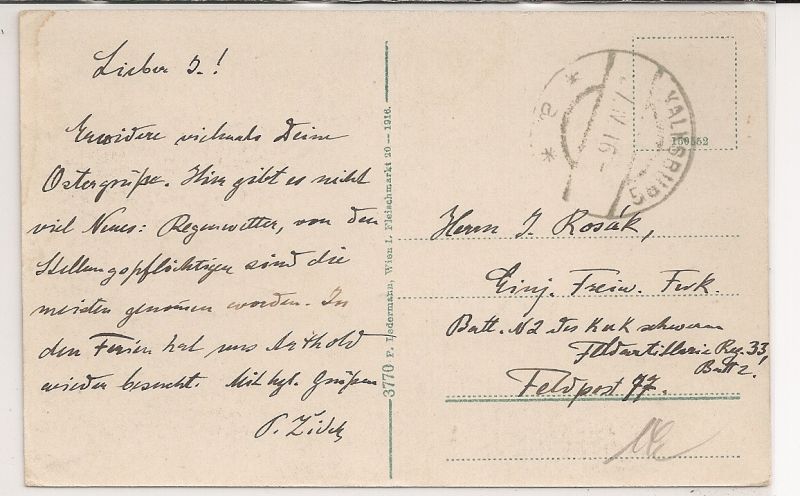 Lieber J.!
Erwidere vielmals Deine
Ostergrüße. Hier gibt es nicht
viel Neues: Regenwetter, von den
Stellungspflichtigen sind die
meisten genom̄en worden. In
den Ferien hat uns Arthold
wieder besucht. Mit hzl. Grüßen
P. Židek
3770 P. Ledermann, Wien I. Fleischmarkt 20 — 1916.
* e *
150552
Herrn J. Rosák,
Einj. Freiw. Fwk.
Batt. N 2 des k u k schweren
Feldartillerie Reg. 33,
Batt 2.
Feldpost 77.